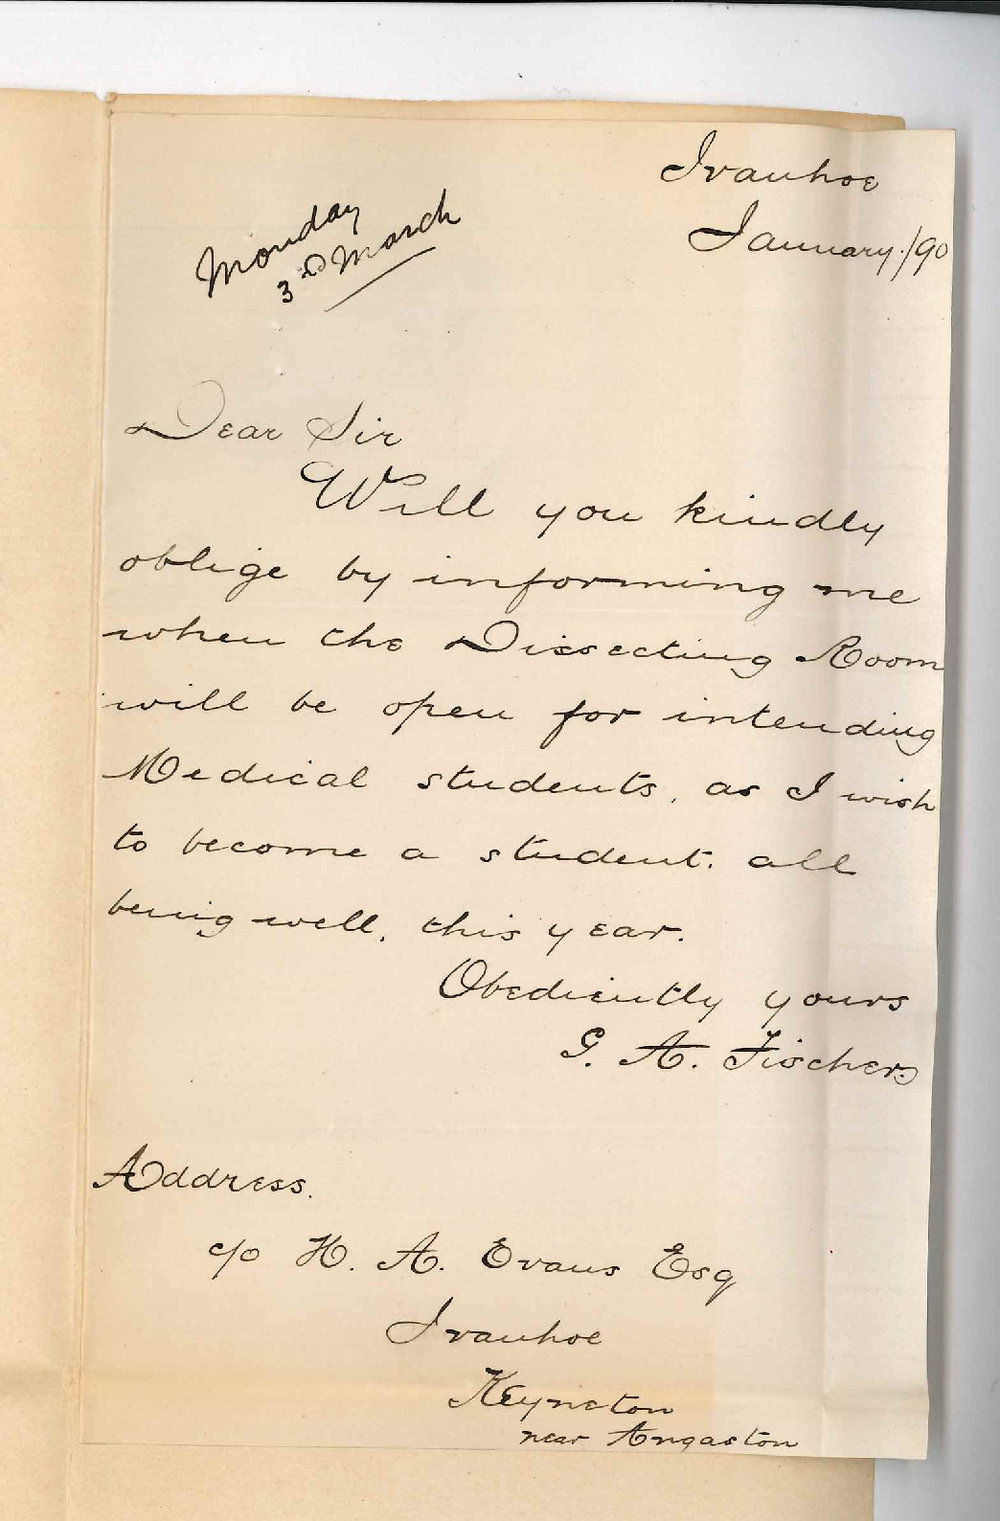 Ivanhoe
January./90
Monday
3rd March
Dear Sir
Will you kindly
oblige by informing me
when the Dissecting Room
will be open for intending
Medical students, as I wish
to become a student. all
being well, this year.
Obediently yours
G. A. Fischer
Address.
c/o H. A. Evans Esq
Ivanhoe
Keyneton
near Angaston